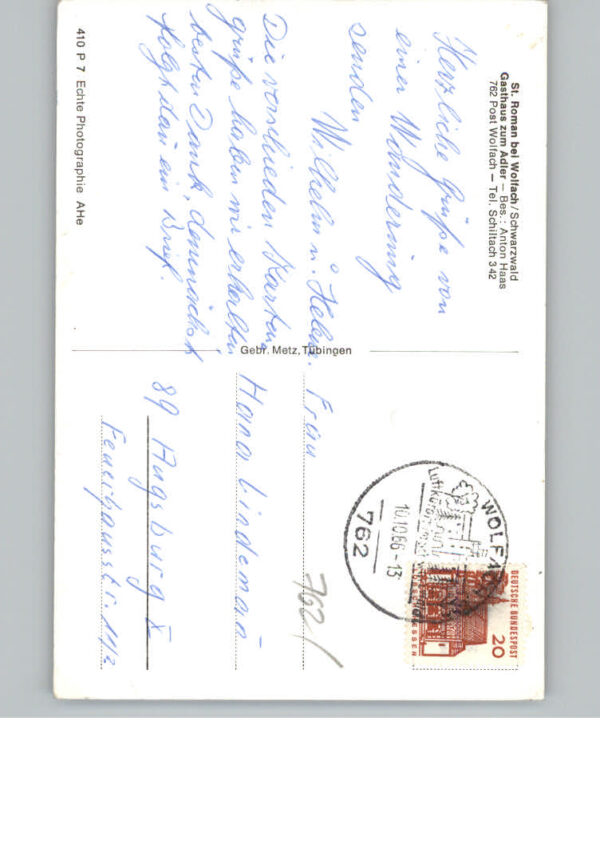 St. Roman bei Wolfach/Schwarzwald
Gasthaus zum Adler — Bes.: Anton Haas
762 Post Wolfach — Tel. Schiltach 342
Herzliche Grüße von
einer Wanderung
senden
Wilhelm u. Helene.
Die verschieden Karten
grüße haben wir erhalten
besten Dank, demnächst
folgt dan ein Brief.
410 P 7 Echte Photographie AHe
Gebr. Metz, Tübingen
DEUTSCHE BUNDESPOST
20
ESSEN
WOLFACH
Luftkurort
10.10.66-13
762
762/
Frau
Hana Lindeman
89 Augsburg X
11/2